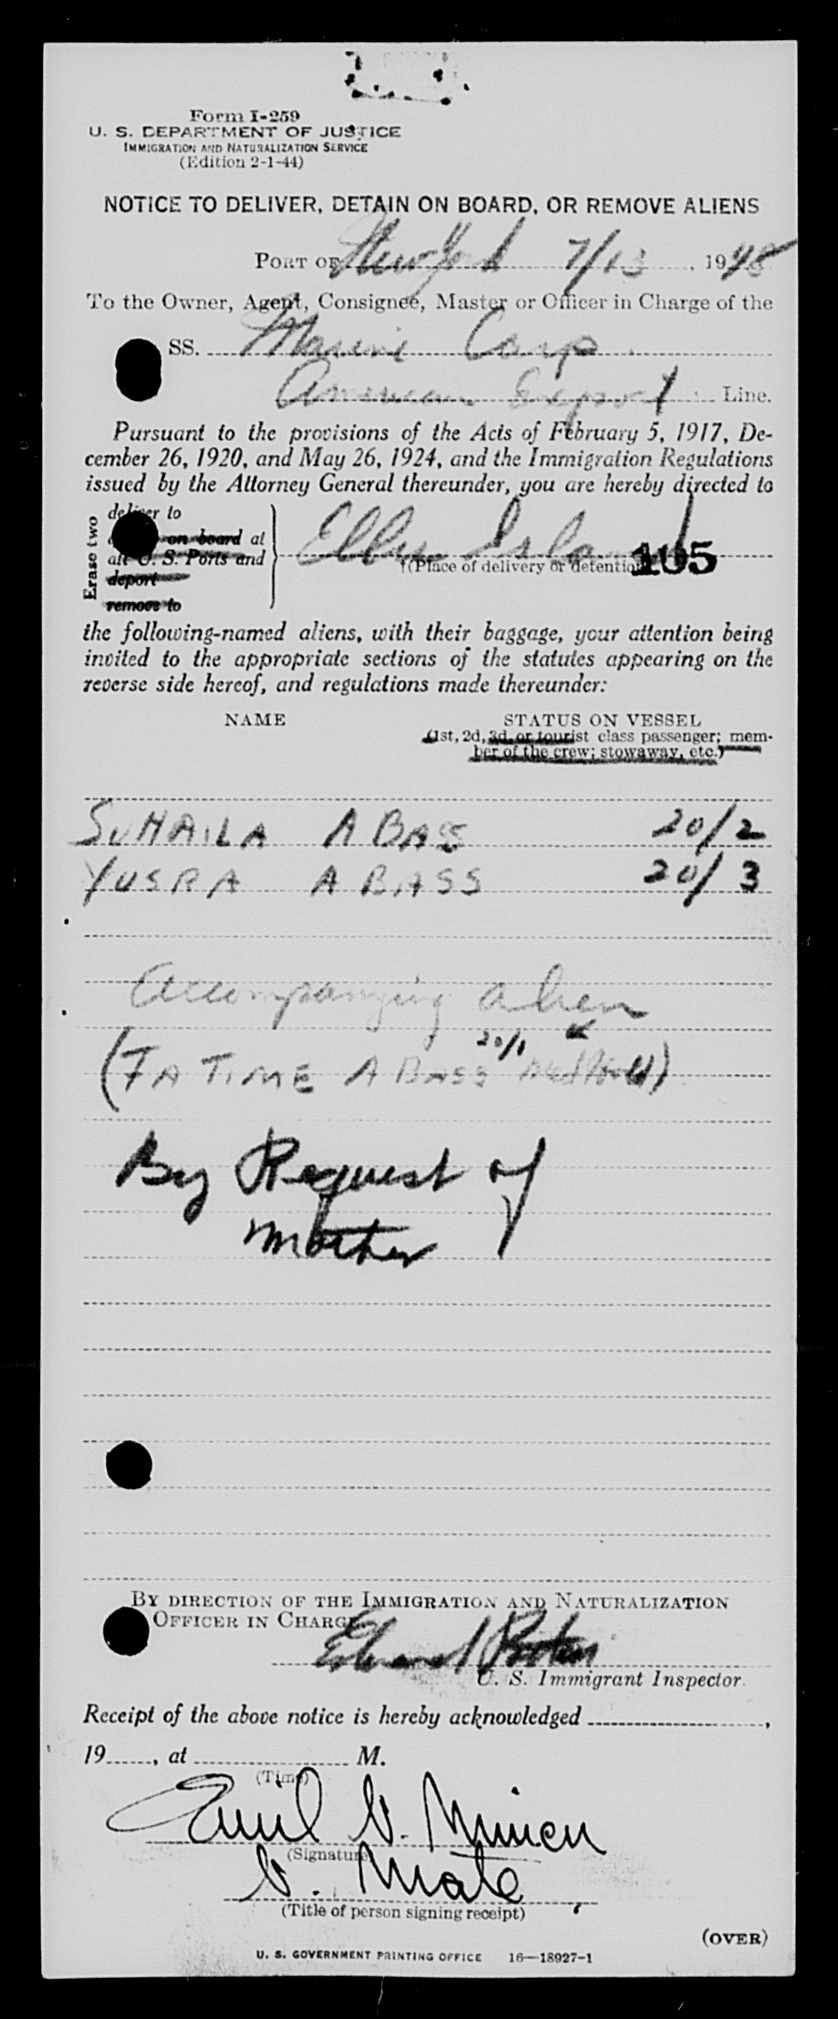 Form I-259
U. S. DEPARTMENT OF JUSTICE
IMMIGRATION AND NATURALIZATION SERVICE
(Edition 2-1-44)
NOTICE TO DELIVER, DETAIN ON BOARD, OR REMOVE ALIENS
PORT OF New York 7/13, 1948
To the Owner, Agent, Consignee, Master or Officer in Charge of the
SS. Marine Carp
American Export Line.
Pursuant to the provisions of the Acts of February 5, 1917, De-
cember 26, 1920, and May 26, 1924, and the Immigration Regulations
issued by the Attorney General thereunder, you are hereby directed to
Erase two
deliver to
on board at
all U. S. Ports and
deport
remove to
Ellis Island
(Place of delivery or detention)
105
the following-named aliens, with their baggage, your attention being
invited to the appropriate sections of the statutes appearing on the
reverse side hereof, and regulations made thereunder:
NAME STATUS ON VESSEL
(1st, 2d, 3d, or tourist class passenger; mem-
ber of the crew; stowaway, etc.)
SUHAILA ABASS 20/2
YUSRA ABASS 20/3
Accompanying alien
(FATIME ABASS 20/1 Med Hold)
By Request of
Mother
BY DIRECTION OF THE IMMIGRATION AND NATURALIZATION
OFFICER IN CHARGE
U. S. Immigrant Inspector.
Receipt of the above notice is hereby acknowledged ,
19 , at M.
(Time)
Emil V.
(Signature)
V. Mate
(Title of person signing receipt)
(OVER)
U. S. GOVERNMENT PRINTING OFFICE 16—18927-1